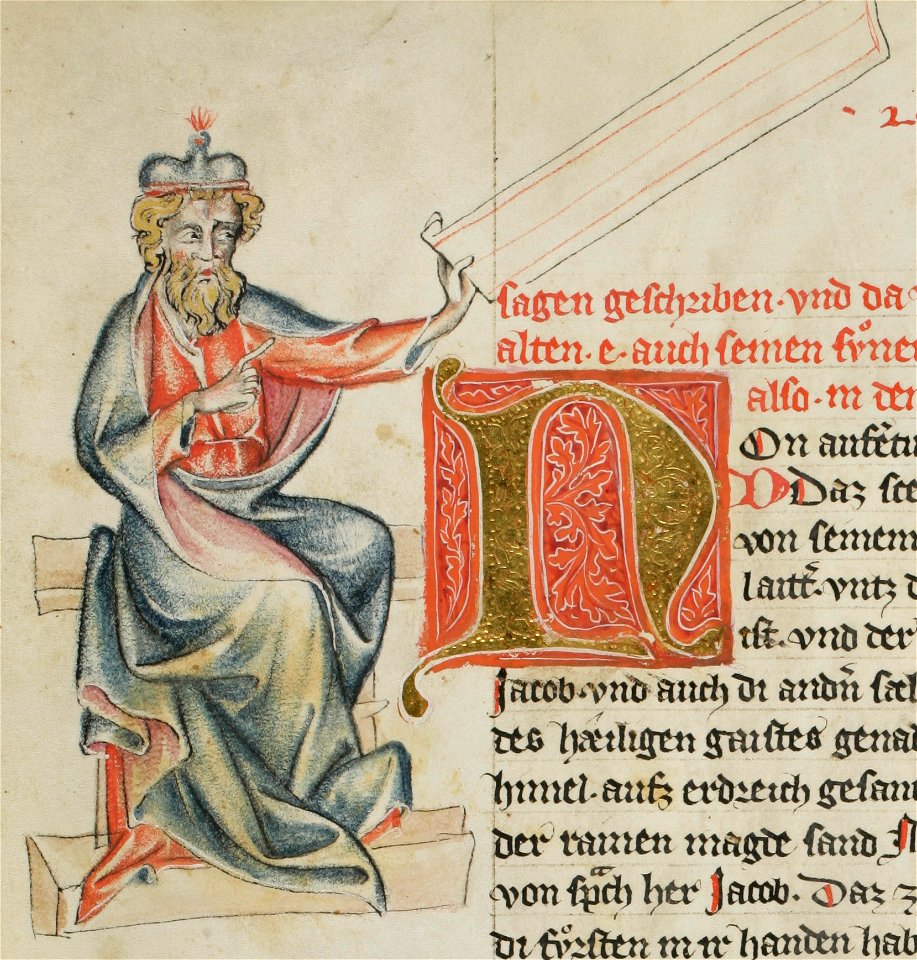 sagen geschriben · vnd da
alten · e · auch seinen sỏne
also · in de
N
On aufē
Daz sce
von seinem
laitt̄ · vntz d
ist · vnd der
Jacob · vnd auch di andn̄ sæl
des hæiligen gaistes gena
himel · aufz erdreich gesan
der rainen magde sand
von spᵃch her Jacob · Daz z
di fỏrsten in ir handen hab